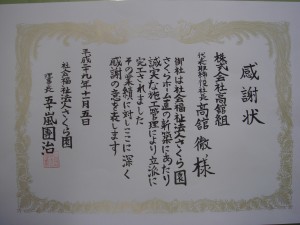 感謝状
株式会社高舘組
代表取締役社長 高舘 徹 様
御社は社会福祉法人さくら園
さくらホーム皿の新築にあたり
誠実な施工管理により立派に
完工されました
その業績に対しここに深く
感謝の意を表します
平成十九年十一月五日
社会福祉法人さくら園
理事長 五十嵐 治